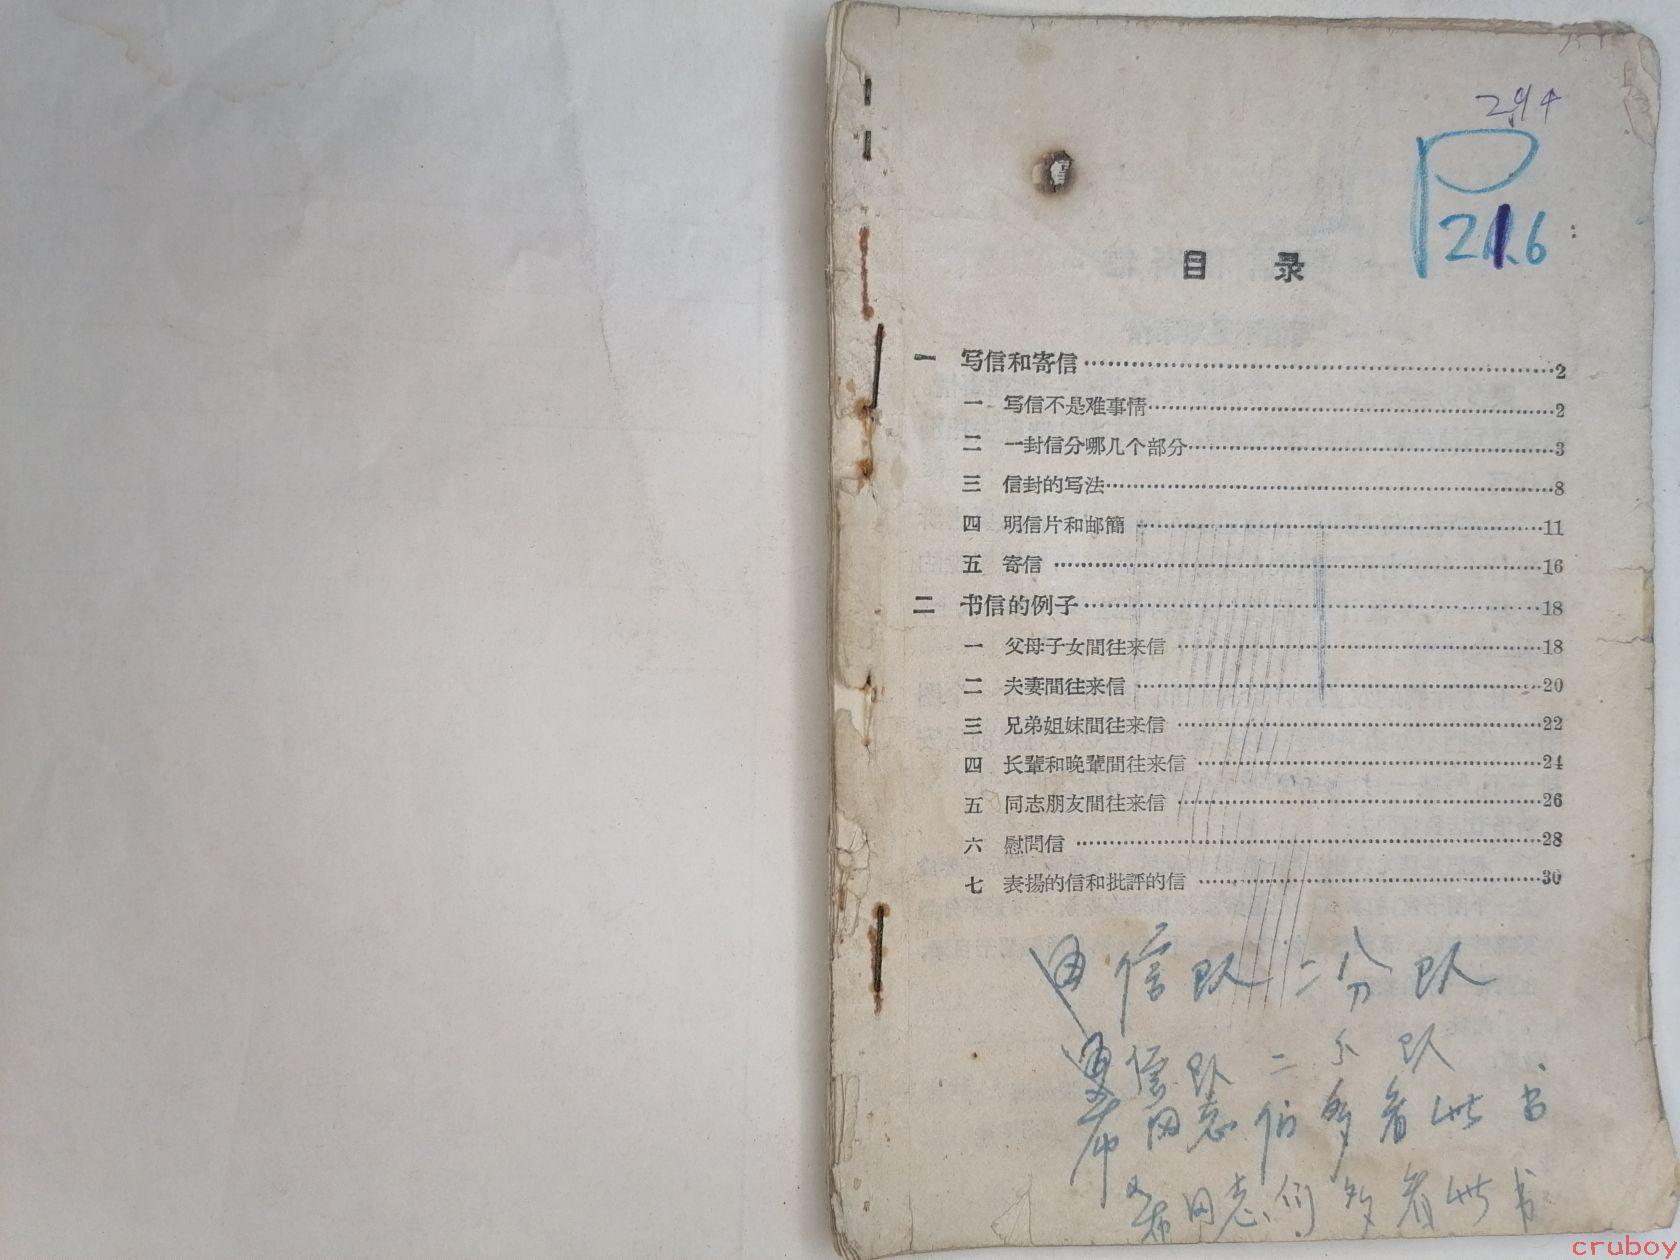 294
P216
目 录
一 写信和寄信…………2
一 写信不是难事情…………2
二 一封信分哪几个部分…………3
三 信封的写法…………8
四 明信片和邮簡…………11
五 寄信…………16
二 书信的例子…………18
一 父母子女間往来信…………18
二 夫妻間往来信…………20
三 兄弟姐妹間往来信…………22
四 长輩和晚輩間往来信…………24
五 同志朋友間往来信…………26
六 慰問信…………28
七 表揚的信和批評的信…………30
信队二分队
信队二分队
希同志们多看此书
希同志们多看此书
cruboy